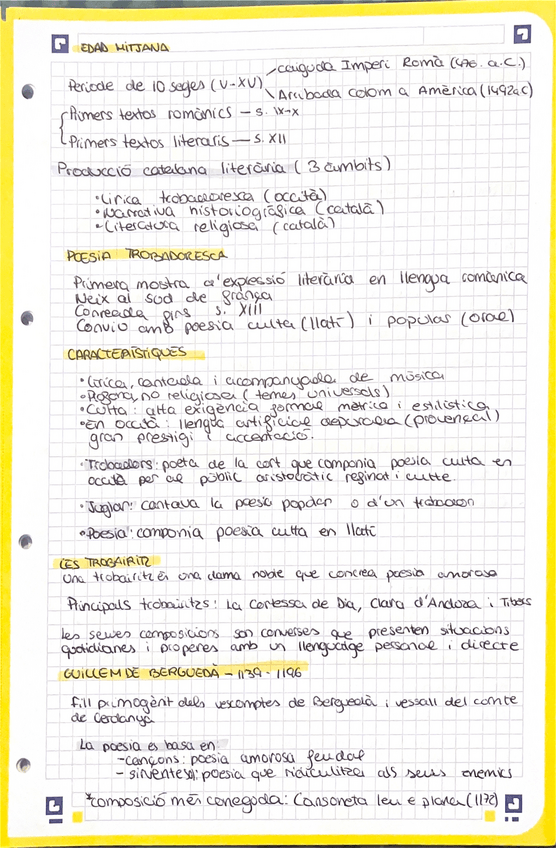 EDAD MITJANA
Període de 10 segles (V-XV)
caiguda Imperi Romà (476. a.C.)
Arribada colom a Amèrica (1492 a C)
Primers textos romànics - s. IX-X
Primers textos literaris - s. XII
Producció catalana literària (3 àmbits)
• Lírica trobadoresca (occità)
• Narrativa historiogràfica (català)
• Literatura religiosa (català)
POESIA TROBADORESCA
Primera mostra d'expressió literària en llengua romànica
Neix al sud de frança
Conreada fins s. XIII
Conviu amb poesia culta (llatí) i popular (oral)
CARACTERÍSTIQUES
• Lírica, cantada i acompanyada de música
• Profana, no religiosa (temes universals)
• Culta: alta exigència formal mètrica i estilística
• En occità: llengua artificial depurada (provençal)
gran prestigi i acceptació.
• Trobadors: poeta de la cort que componia poesia culta en
occità per al públic aristocràtic refinat i culte.
• Juglar: cantava la poesia popular o d'un trobador
• Poesia: componia poesia culta en llatí
LES TROBAIRITZ
Una trobairitz és una dama noble que conrea poesia amorosa
Principals trobairitzs: La Contessa de Dia, Clara d'Anduza i Tibors
les seves composicions són converses que presenten situacions
quotidianes i properes amb un llenguatge personal i directe
GUILLEM DE BERGUEDÀ - 1139 - 1196
fill primogènit dels vescomptes de Berguedà i vassall del comte
de Cerdanya
La poesia es basa en:
- cançons: poesia amorosa feudal
- sirventesq: poesia que ridiculitza als seus enemics
*composició més coneguda: Cansoneta leu e plana (1172)